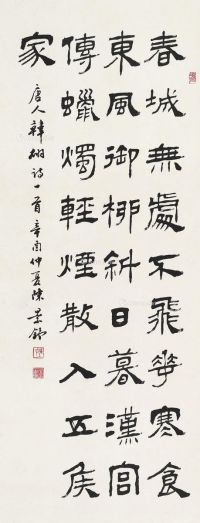 春城無處不飛花寒食
東風御柳斜日暮漢宮
傳蠟燭輕煙散入五侯
家
唐人韓翃詩一首辛酉仲夏陳景舒